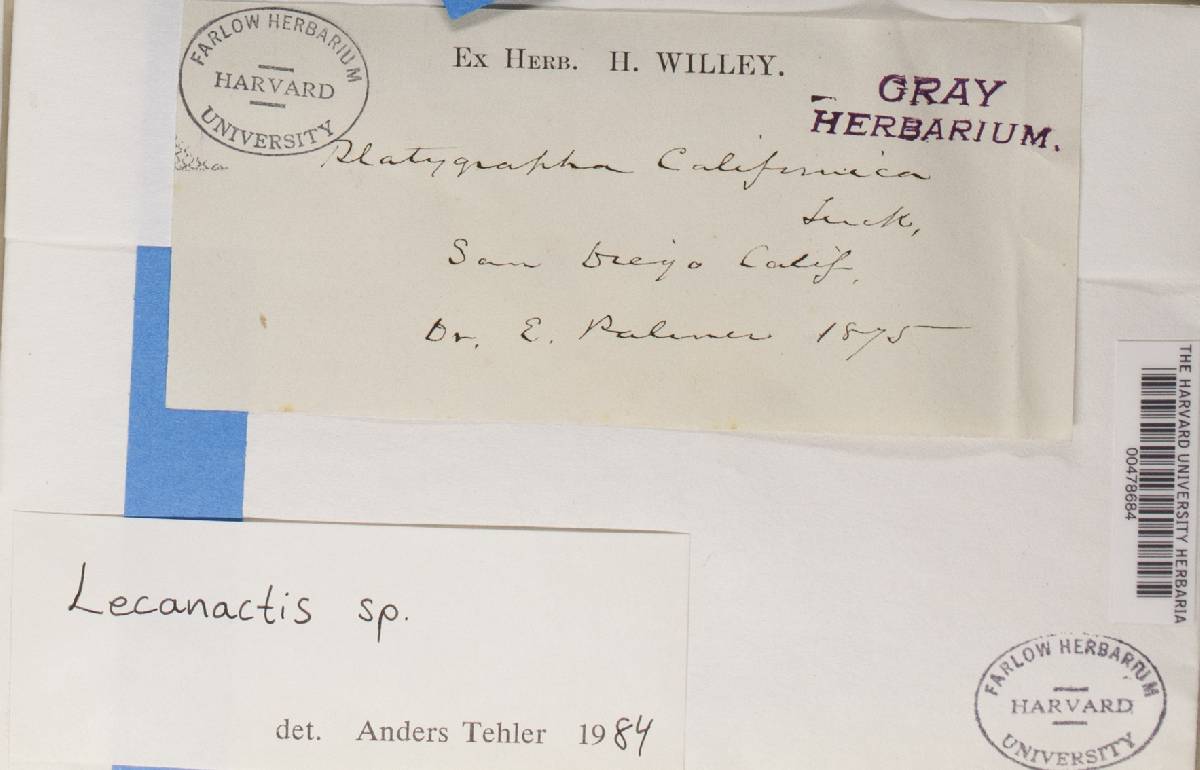 FARLOW HERBARIUM
HARVARD
UNIVERSITY
Ex Herb. H. WILLEY.
GRAY
HERBARIUM.
Platygrapha Californica
Tuck,
San Diego Calif.
Dr. E. Palmer 1875
THE HARVARD UNIVERSITY HERBARIA
00478684
Lecanactis sp.
det. Anders Tehler 1984
FARLOW HERBARIUM
HARVARD
UNIVERSITY